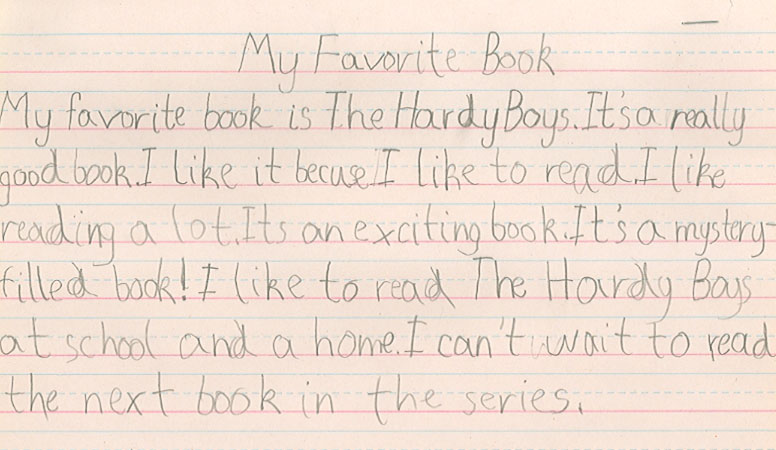 My Favorite Book
My favorite book is The Hardy Boys. It's a really
good book. I like it becuse I like to read. I like
reading a lot. Its an exciting book. It's a mystery-
filled book! I like to read The Hardy Boys
at school and a home. I can't wait to read
the next book in the series.